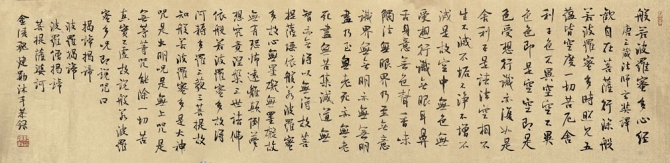 般若波羅蜜多心經
唐三藏法師玄奘譯
觀自在菩薩行深般
若波羅蜜多時照見五
蘊皆空度一切苦厄舍
利子色不異空空不異
色色即是空空即是
色受想行識亦復如是
舍利子是諸法空相不
生不滅不垢不淨不增不
減是故空中無色無
受想行識無眼耳鼻
舌身意無色聲香味
觸法無眼界乃至無意
識界無無明亦無無明
盡乃至無老死亦無老
死盡無苦集滅道無
智亦無得以無所得故菩
提薩埵依般若波羅蜜
多故心無罣礙無罣礙故
無有恐怖遠離顛倒夢
想究竟涅槃三世諸佛
依般若波羅蜜多故
得阿耨多羅三藐三菩提故
知般若波羅蜜多是大神
咒是大明咒是無上咒是
無等等咒能除一切苦
真實不虛故說般若波羅
蜜多咒即說咒曰
揭諦揭諦
波羅揭諦
波羅僧揭諦
菩提薩婆訶